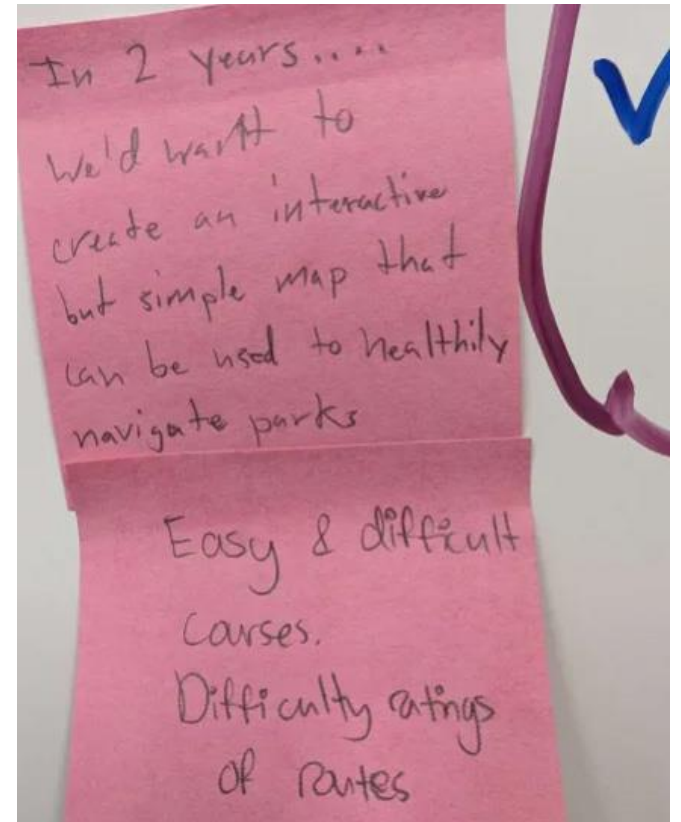 In 2 years....
We'd want to
create an interactive
but simple map that
can be used to healthily
navigate parks
Easy & difficult
courses.
Difficulty ratings
of routes